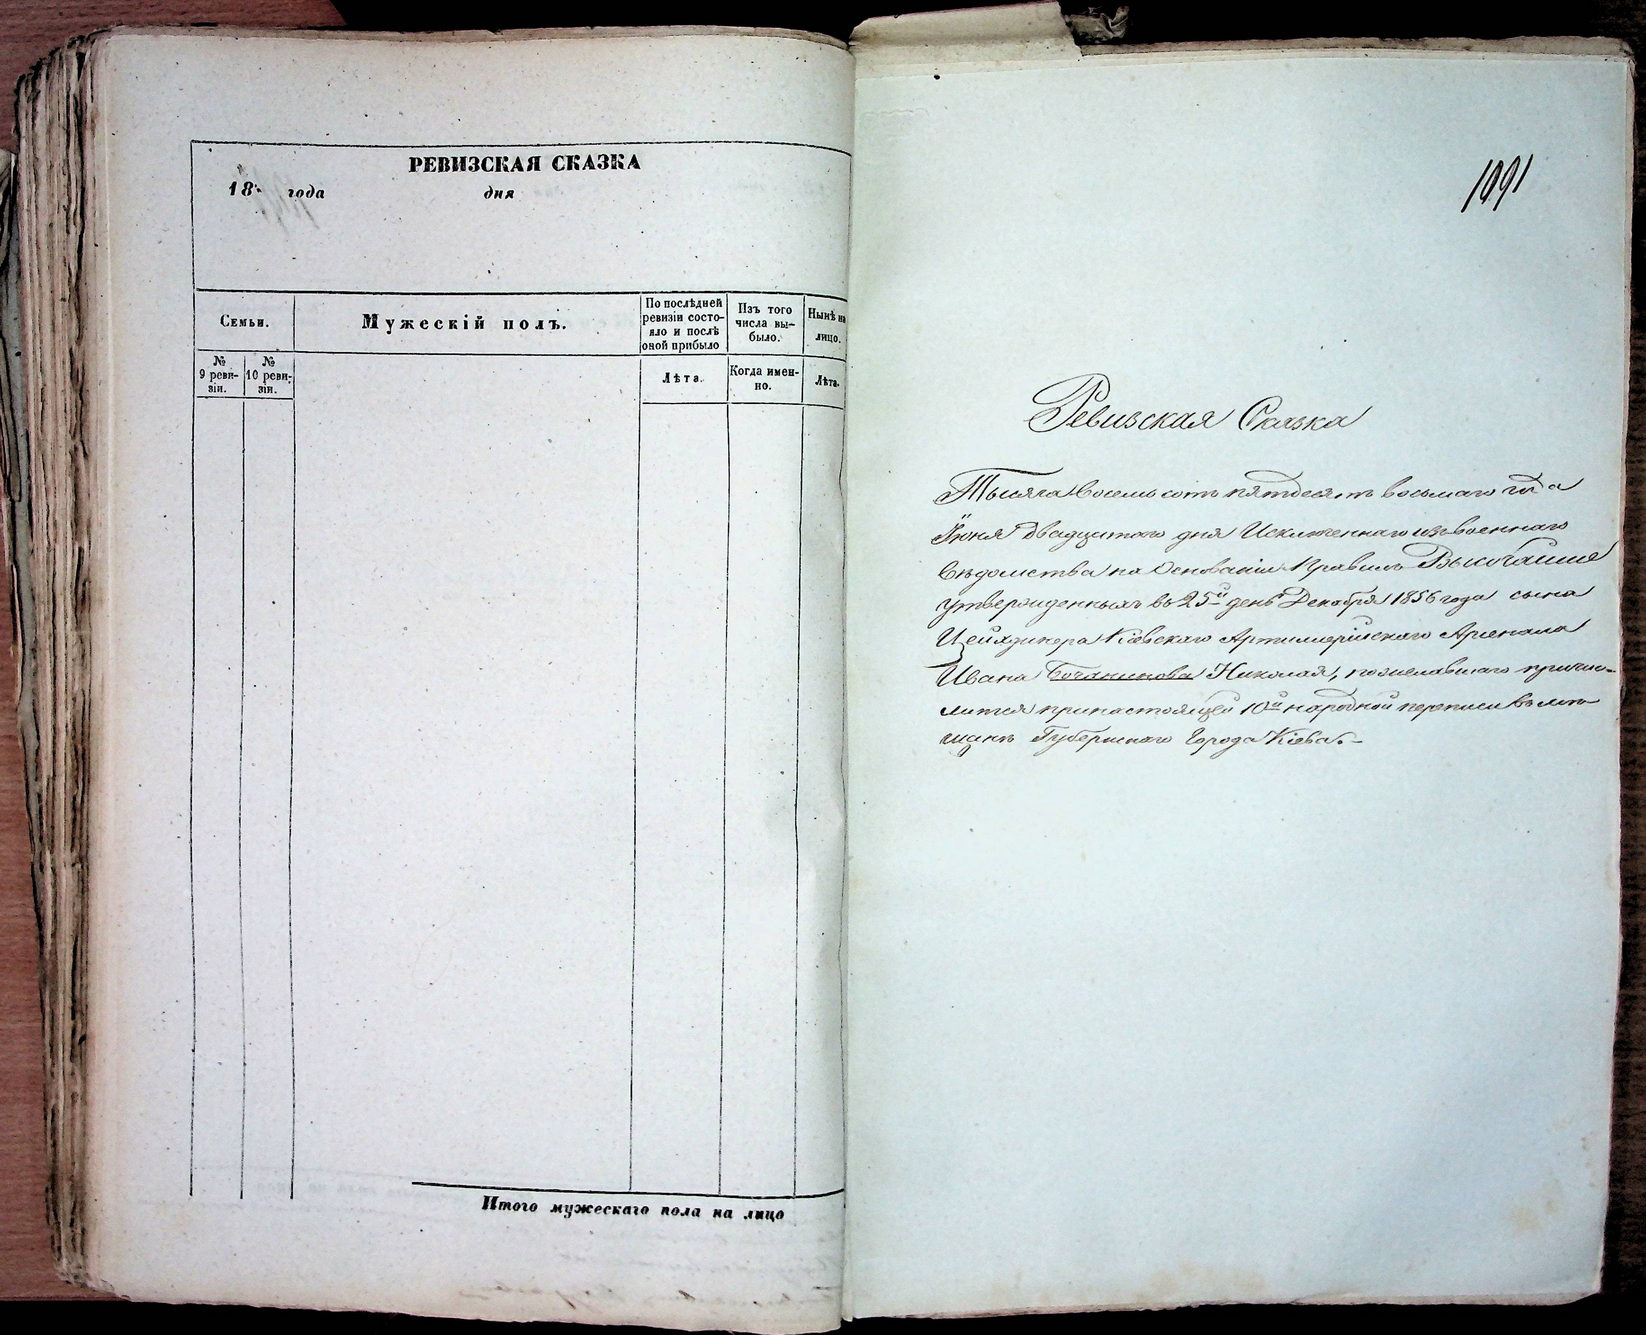 РЕВИЗСКАЯ СКАЗКА
18 года дня
Семьи.
Мужескій полъ.
По послѣдней ревизіи состо-
яло и послѣ
оной прибыло
Изъ того
числа вы-
было.
Нынѣ на
лицо.
№
9 реви-
зіи.
№
10 реви-
зіи.
Лѣта.
Когда имен-
но.
Лѣта.
Итого мужескаго пола на лицо
1091
Ревизская Сказка
Тысяча восемьсотъ пятдесятъ восьмаго года
Іюня двадцатого дня Исключеннаго изъ военнаго
вѣдомства на Основаніи Правилъ Высочайше
утвержденныхъ въ 25й день Декабря 1856 года сына
Цейхдинера Кіевскаго Артиллерійскаго Арсенала
Ивана Николая, пожелавшаго причис-
литься при настоящей 10й народной переписи въ мѣ-
щане Губернскаго Города Кіева.-